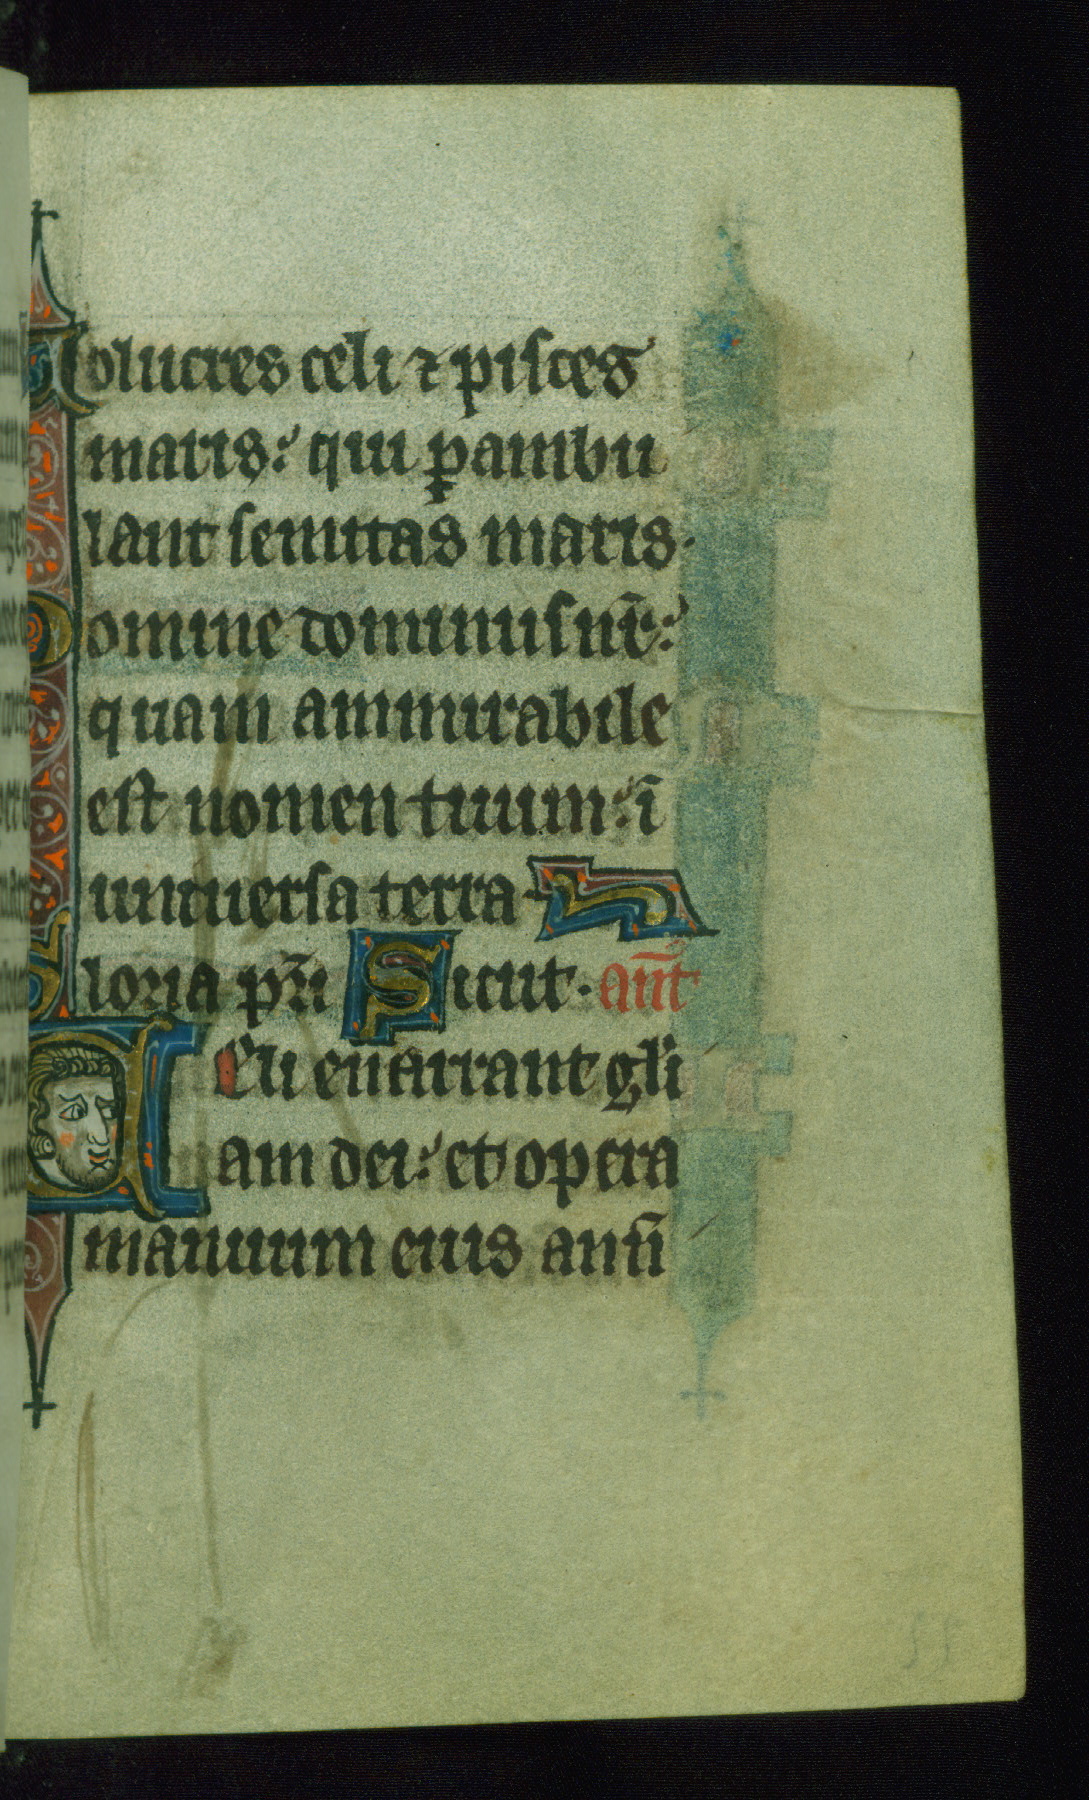 Volucres celi ⁊ pisces
maris: qui ꝑambu
lant semitas maris.
Domine dominus nr̄:
quam ammirabile
est nomen tuum: ī
uniuersa terra.
Gloria pr̄i Sicut. ant̄
Celi enarrant gl̄i
am dei: et opera
manuum eius anñ
55